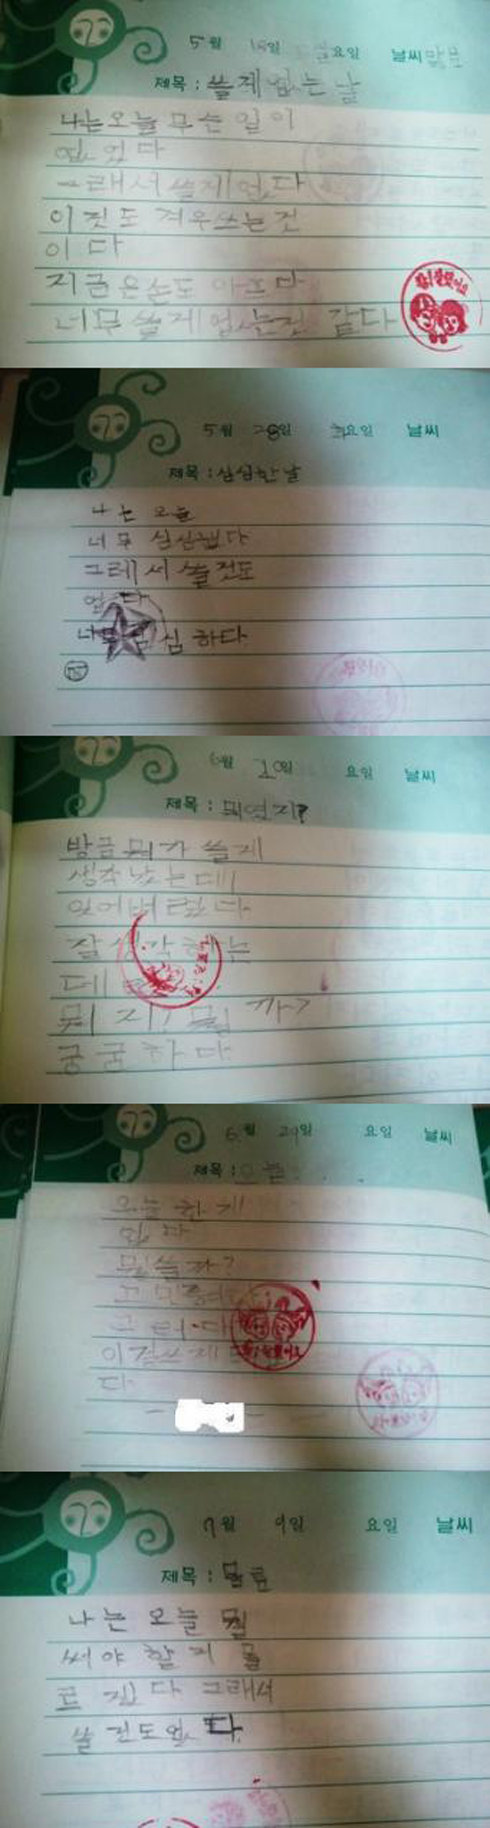 5월 18일 요일 날씨 맑음
제목 : 쓸게 없는 날
나는 오늘 무슨 일이
없었다
그래서 쓸게 없다
이것도 겨우 쓰는 것
이다
지금은 손도 아프다
너무 쓸게 없는것 같다
참! 잘했어요
5월 28일 요일 날씨
제목 : 심심한 날
나는 오늘
너무 심심했다
그레서 쓸 것도
없다
너무 심심하다
6월 10일 요일 날씨
제목 : 뭐였지?
방금 뭐가 쓸게
생각났는데
잊어버렸다
잘 생각하는
데
뭐지! 뭘까?
궁굼하다
6월 29일 요일 날씨
제목 : 오늘. . . .
오늘 한게
없다
뭘 쓸까?
고민
그러다
이걸 쓰게
다
7월 9일 요일 날씨
제목 :
나는 오늘 뭘
써야 할지 몰
르겠다 그래서
쓸 것도 없다.